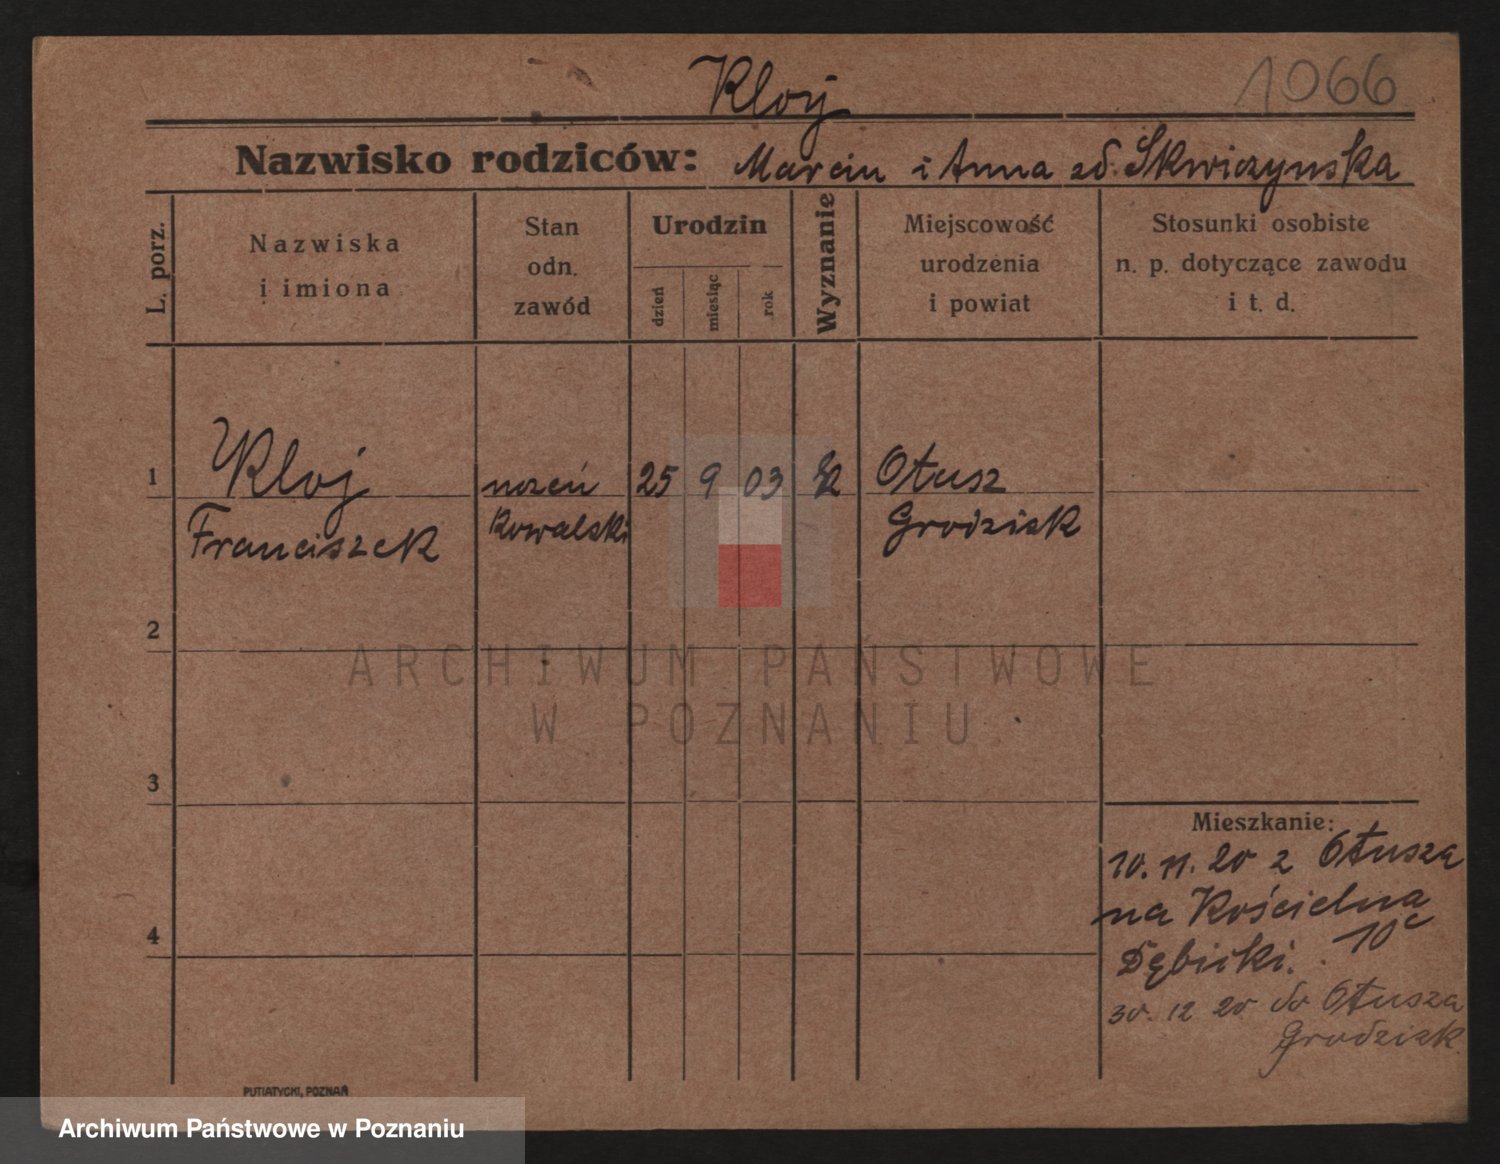 Kloj
1066
Nazwisko rodziców: Marcin i Anna zd. Skwiczynska
L. porz.
Nazwiska
i imiona
Stan
odn.
zawód
Urodzin
dzień
miesiąc
rok
Wyznanie
Miejscowość
urodzenia
i powiat
Stosunki osobiste
n. p. dotyczące zawodu
i t. d.
1
Kloj
Franciszek
uczeń
Kowalski
25 9 03
Otusz
Grodzisk
2
3
4
Mieszkanie:
10. 11. 20 z Otusza
na Kościelna
10c
30. 12 20 do Otusza
Grodzisk.
PUTIATYCKI, POZNAŃ
ARCHIWUM PAŃSTWOWE
W POZNANIU
Archiwum Państwowe w Poznaniu